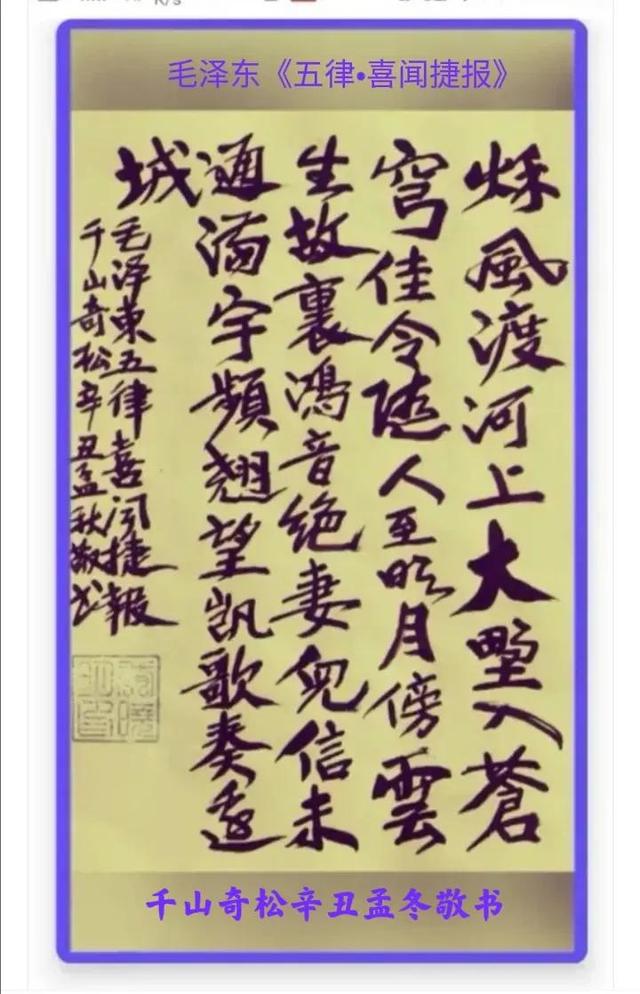 毛泽东《五律•喜闻捷报》
秋風渡河上大墅入蒼
穹佳令随人至明月傍雲
生故裏鴻音绝妻兒信未
通滿宇頻翘望凯歌奏邊
城
毛泽東五律喜闻捷報
千山奇松辛丑孟秋敬书
千山奇松辛丑孟冬敬书